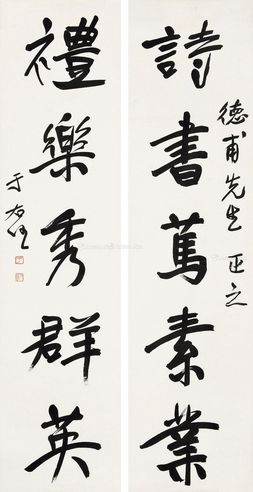 詩書萬素業
德甫先生正之
禮樂秀群英
于右任